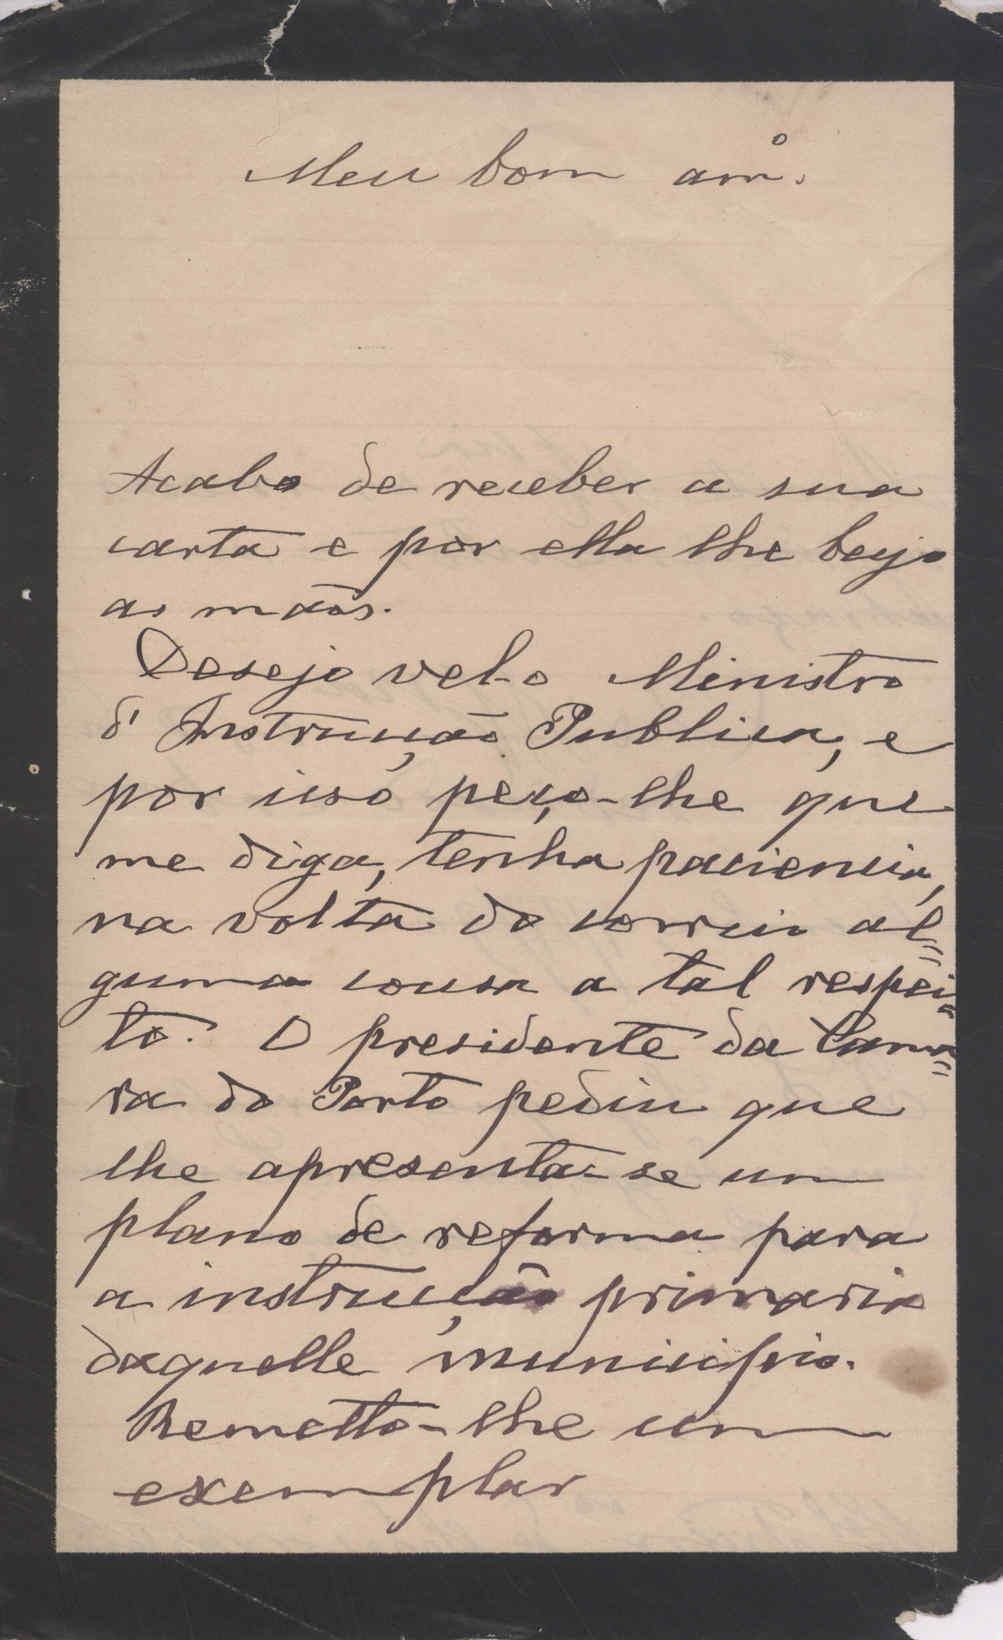 Meu bom amº.
Acabo de receber a sua
carta e por ella lhe beijo
as mãos.
Desejo vel-o Ministro
d'Instrucção Publica, e
por isso peço-lhe que
me diga, tenha paciencia,
na volta do correio al=
guma cousa a tal respei=
to. O presidente da Cama=
ra do Porto pediu que
lhe apresentasse um
plano de reforma para
a instrucção primaria
daquelle municipio.
Remetto-lhe um
exemplar